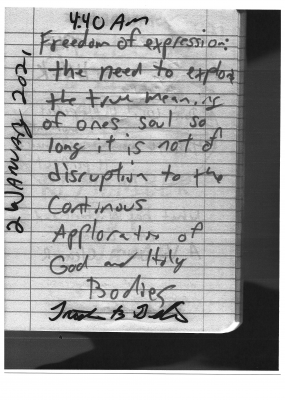 4:40 AM
Freedom of expression:
the need to explore
the true meaning
of ones soul so
long it is not of
disruption to the
Continous
of
God and Holy
Bodies
2 JANUARY 2021